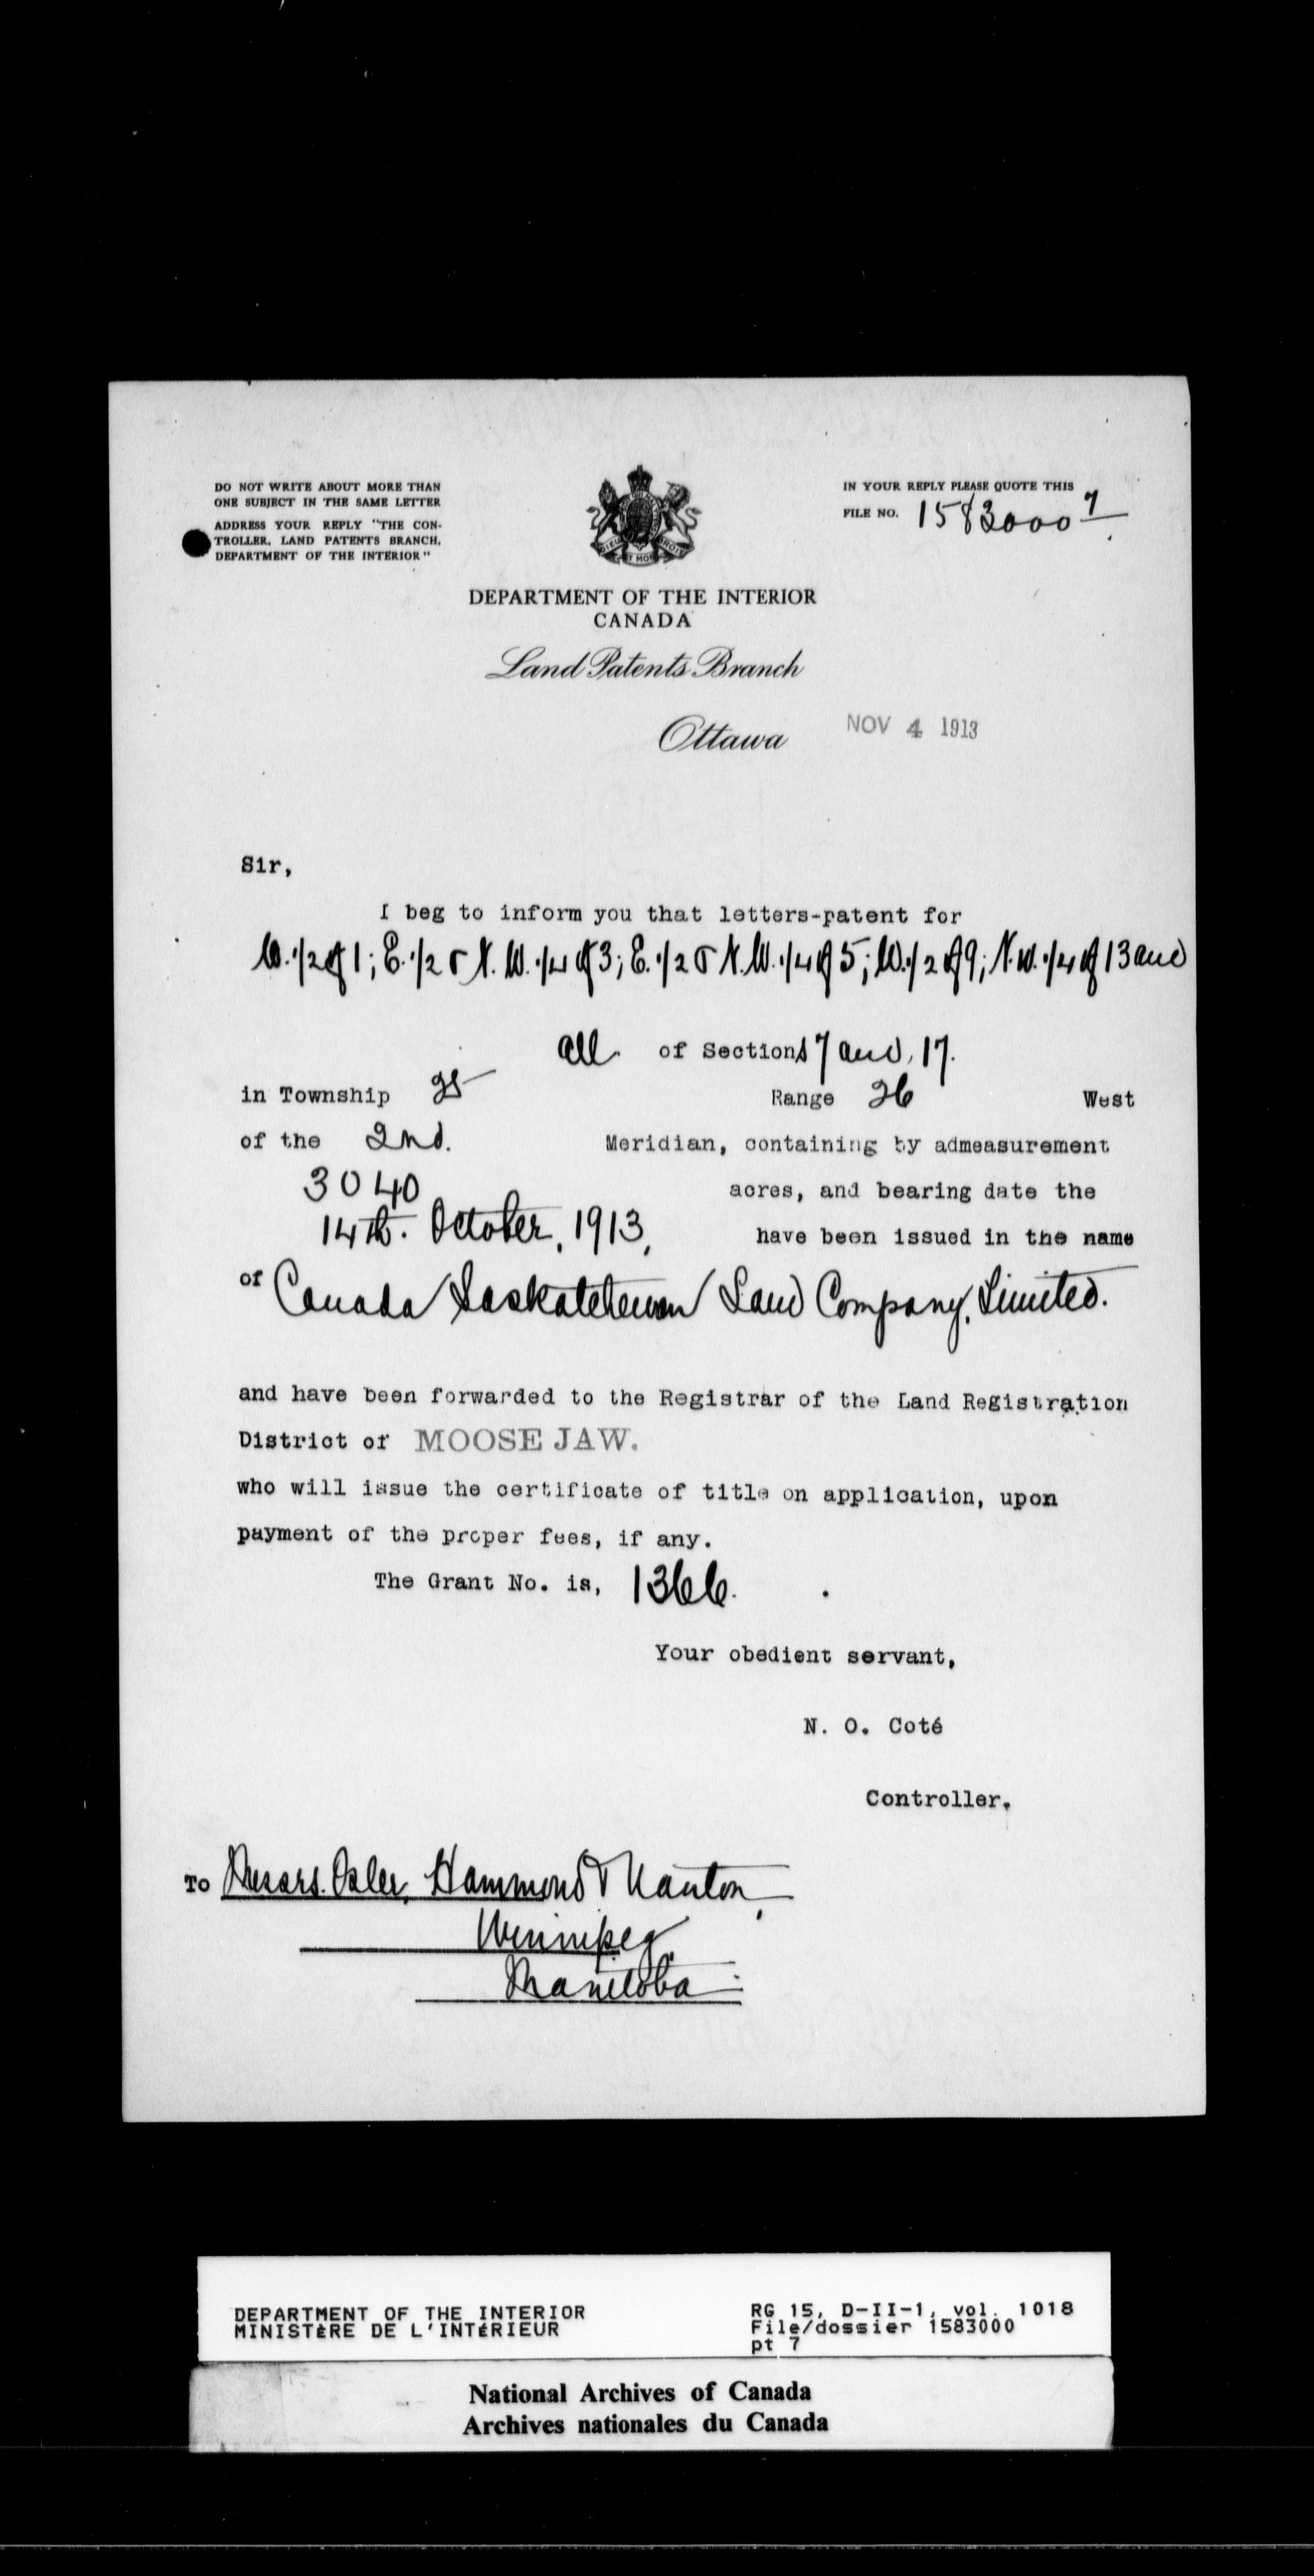 DO NOT WRITE ABOUT MORE THAN
ONE SUBJECT IN THE SAME LETTER
ADDRESS YOUR REPLY "THE CON-
TROLLER, LAND PATENTS BRANCH,
DEPARTMENT OF THE INTERIOR"
IN YOUR REPLY PLEASE QUOTE THIS
FILE NO. 1583000 7
DIEU ET MON DROIT
DEPARTMENT OF THE INTERIOR
CANADA
Land Patents Branch
Ottawa NOV 4 1913
Sir,
I beg to inform you that letters-patent for
W. 1/2 of 1; E. 1/2 & N. W. 1/4 of 3; E. 1/2 & N. W. 1/4 of 5; W. 1/2 of 9; N. W. 1/4 of 13 and
all of Sections 7 and, 17.
in Township 25 Range 26 West
of the 2nd. Meridian, containing by admeasurement
3040 acres, and bearing date the
14th. October, 1913, have been issued in the name
of Canada Saskatchewan Land Company, Limited.
and have been forwarded to the Registrar of the Land Registration
District of MOOSE JAW.
who will issue the certificate of title on application, upon
payment of the proper fees, if any.
The Grant No. is, 1366.
Your obedient servant,
N. O. Coté
Controller.
To Messrs. Osler, Hammond & Nanton,
Winnipeg,
Manitoba
DEPARTMENT OF THE INTERIOR
MINISTÈRE DE L'INTÉRIEUR
RG 15, D-II-1, vol. 1018
File/dossier 1583000
pt 7
National Archives of Canada
Archives nationales du Canada